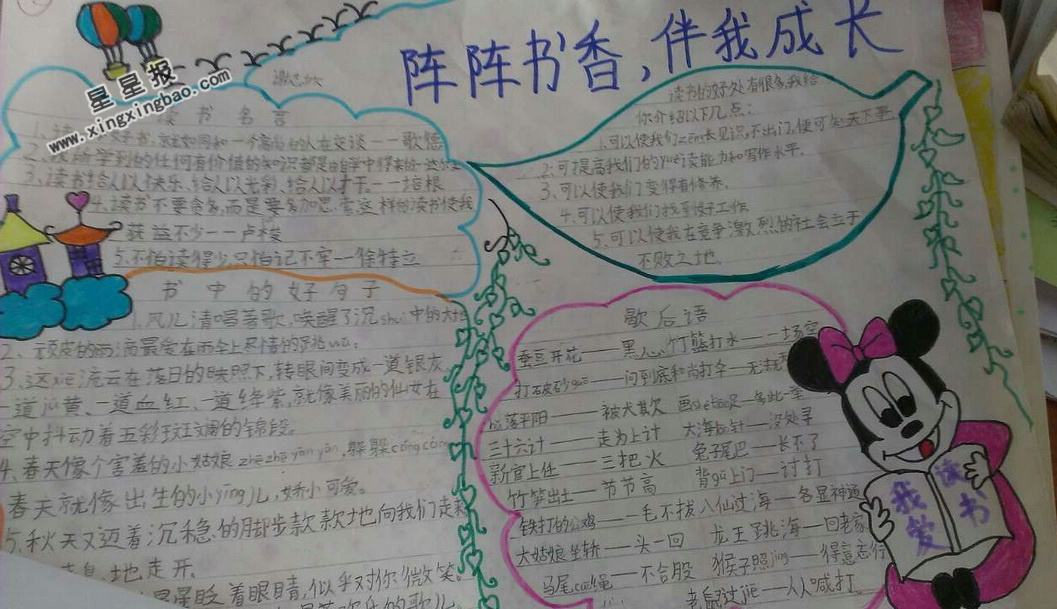 阵阵书香,伴我成长
星星报
www.xingxingbao.com
读书名言
一个高尚的人在交谈一一歌德
3、读书给人以快乐、给人以光彩、给人以才干。一一培根
4.读书不要贪多,而是要多加思索,这样的读书使我
获益不少一一卢梭
5.不怕读得少,只怕记不牢一一徐特立
读书的好处有很多,我给
你介绍以下几点:
1.可以使我们zēn长见识,不出门,便可知天下事.
2.可提高我们的yuè读能力和写作水平。
3.可以使我们变得有修养。
4.可以使我们找到好工作
5.可以使我在竞争激烈的社会立于
不败之地.
书中的好句子
1.风儿清唱著歌,唤醒了沉shuì中的大地
2、顽皮的雨滴最爱在雨伞上尽情的跳wǔ.
3.这xiē流云在落日的映照下,转眼间变成一道银灰、
一道jú黄、一道血红、一道绛紫,就像美丽的仙女在
空中抖动着五彩斑斓的锦段。
4.春天像个害羞的小姑娘zhē zhē yǎn yǎn,躲躲cáng cáng
春天就像出生的小yīng儿,娇小可爱。
5.秋天又迈着沉稳的脚步款款地向我们走来
地走开.
星星眨着眼睛,似乎对你微笑。
歌后语
蚕豆开花——黑心 竹篮打水——一场空
打破砂guō——问到底 和尚打伞——无法无
hǔ落平阳——被犬欺 画shé tiān足——多此一举
三十六计——走为上计 大海捞针——没处寻
新官上任——三把火 兔子尾巴——长不了
竹笋出土——节节高 背gǔ上门——讨打
铁打的公鸡——一毛不拔 八仙过海——各显神通
大姑娘坐轿——头一回 龙王跳海——回老家
马尾cuō绳——不合股 猴子照jìng——得意忘行
老鼠过jiē——人人喊打.
我爱
读书